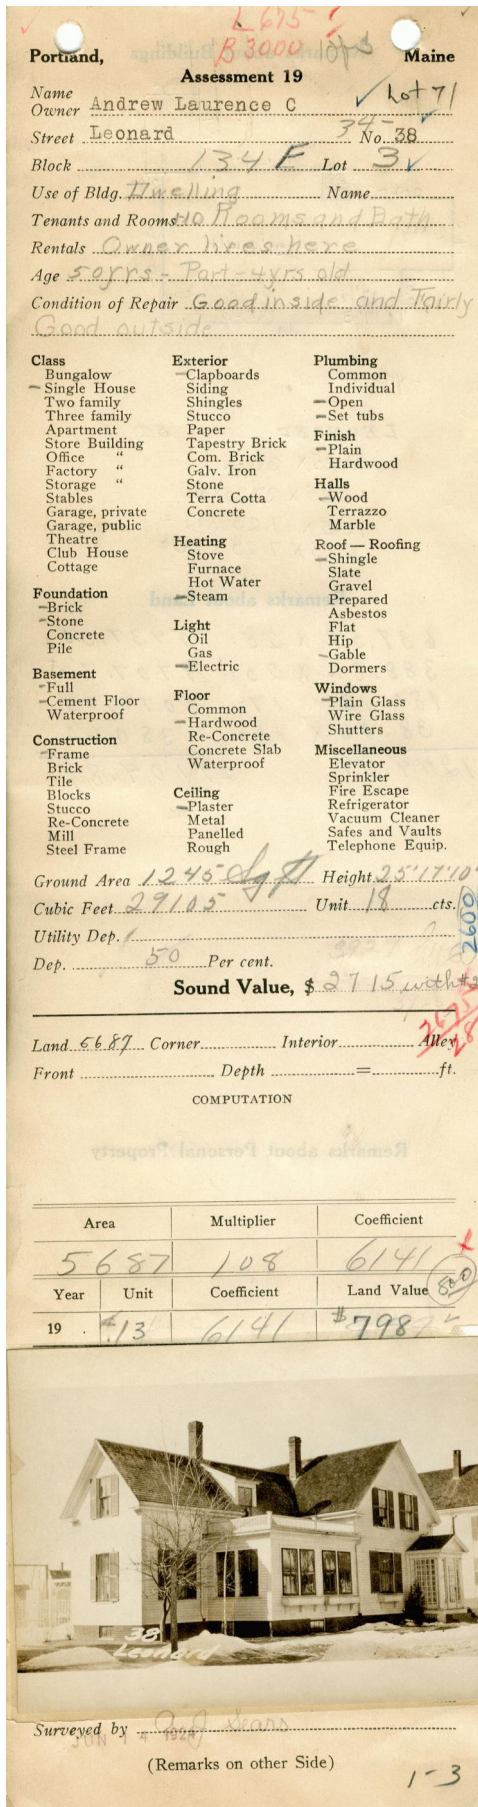 L 675
B 3000 1 of 3
Portland, Maine
Assessment 19
Name
Owner Andrew Laurence C Lot 71
Street Leonard 34- No. 38
Block 134 F Lot 3
Use of Bldg. Dwelling Name
Tenants and Rooms 10 Rooms and Bath
Rentals Owner lives here
Age 50 yrs - Part - 4 yrs old
Condition of Repair Good inside and Fairly
Good outside
Class
Bungalow
Single House
Two family
Three family
Apartment
Store Building
Office "
Factory "
Storage "
Stables
Garage, private
Garage, public
Theatre
Club House
Cottage
Foundation
Brick
Stone
Concrete
Pile
Basement
Full
Cement Floor
Waterproof
Construction
Frame
Brick
Tile
Blocks
Stucco
Re-Concrete
Mill
Steel Frame
Exterior
Clapboards
Siding
Shingles
Stucco
Paper
Tapestry Brick
Com. Brick
Galv. Iron
Stone
Terra Cotta
Concrete
Heating
Stove
Furnace
Hot Water
Steam
Light
Oil
Gas
Electric
Floor
Common
Hardwood
Re-Concrete
Concrete Slab
Waterproof
Ceiling
Plaster
Metal
Panelled
Rough
Plumbing
Common
Individual
Open
Set tubs
Finish
Plain
Hardwood
Halls
Wood
Terrazzo
Marble
Roof — Roofing
Shingle
Slate
Gravel
Prepared
Asbestos
Flat
Hip
Gable
Dormers
Windows
Plain Glass
Wire Glass
Shutters
Miscellaneous
Elevator
Sprinkler
Fire Escape
Refrigerator
Vacuum Cleaner
Safes and Vaults
Telephone Equip.
Ground Area 1245 Sq ft Height 25'17'10'
Cubic Feet 29105 Unit 18 cts.
2600
Utility Dep.
Dep. 50 Per cent.
Sound Value, $ 2715 with #2
Land 5687 Corner Interior Alley
Front Depth = ft.
COMPUTATION
Area Multiplier Coefficient
5687 108 6141
Year Unit Coefficient Land Value 800
19 . .13 6141 $798
38
Leonard
Surveyed by Sears
JUN 14 1924
(Remarks on other Side)
1-3